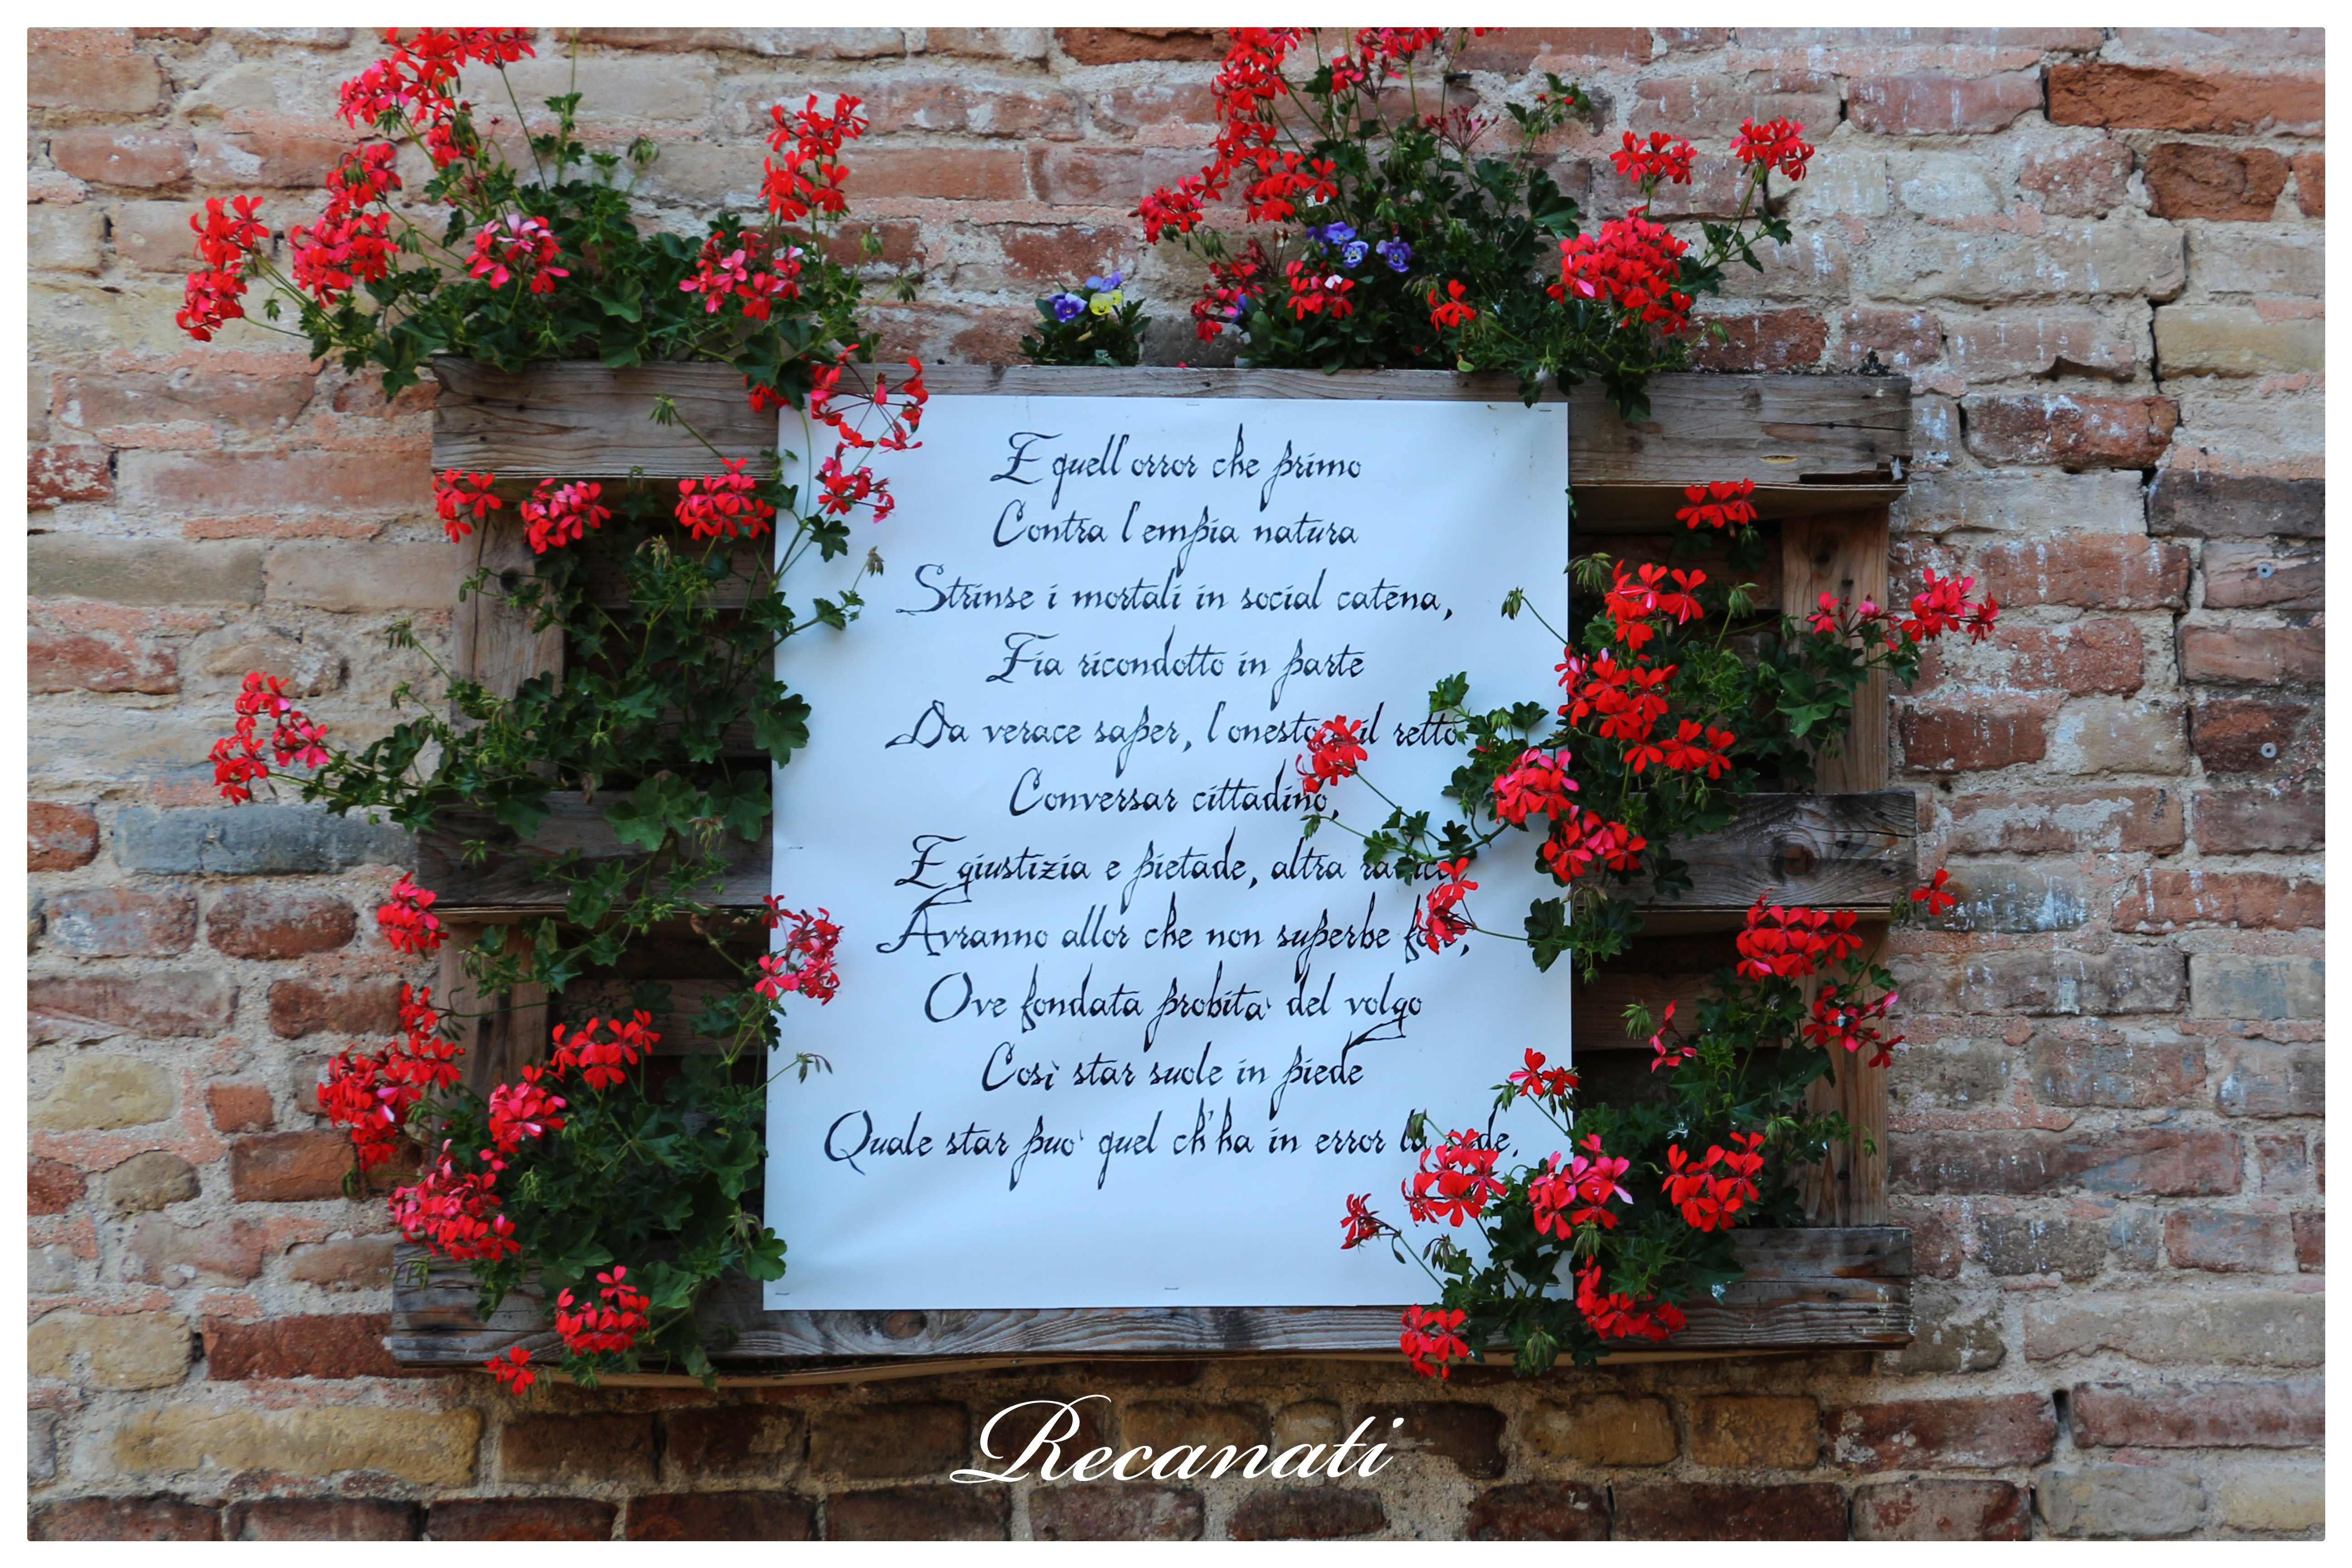 E quell'orror che primo
Contra l'empia natura
Strinse i mortali in social catena,
Fia ricondotto in parte
Da verace saper, l'onesto il retto
Conversar cittadino,
E giustizia e pietade, altra radice
Avranno allor che non superbe
Ove fondata probita' del volgo
Così star suole in piede
Quale star puo' quel ch'ha in error la
Recanati